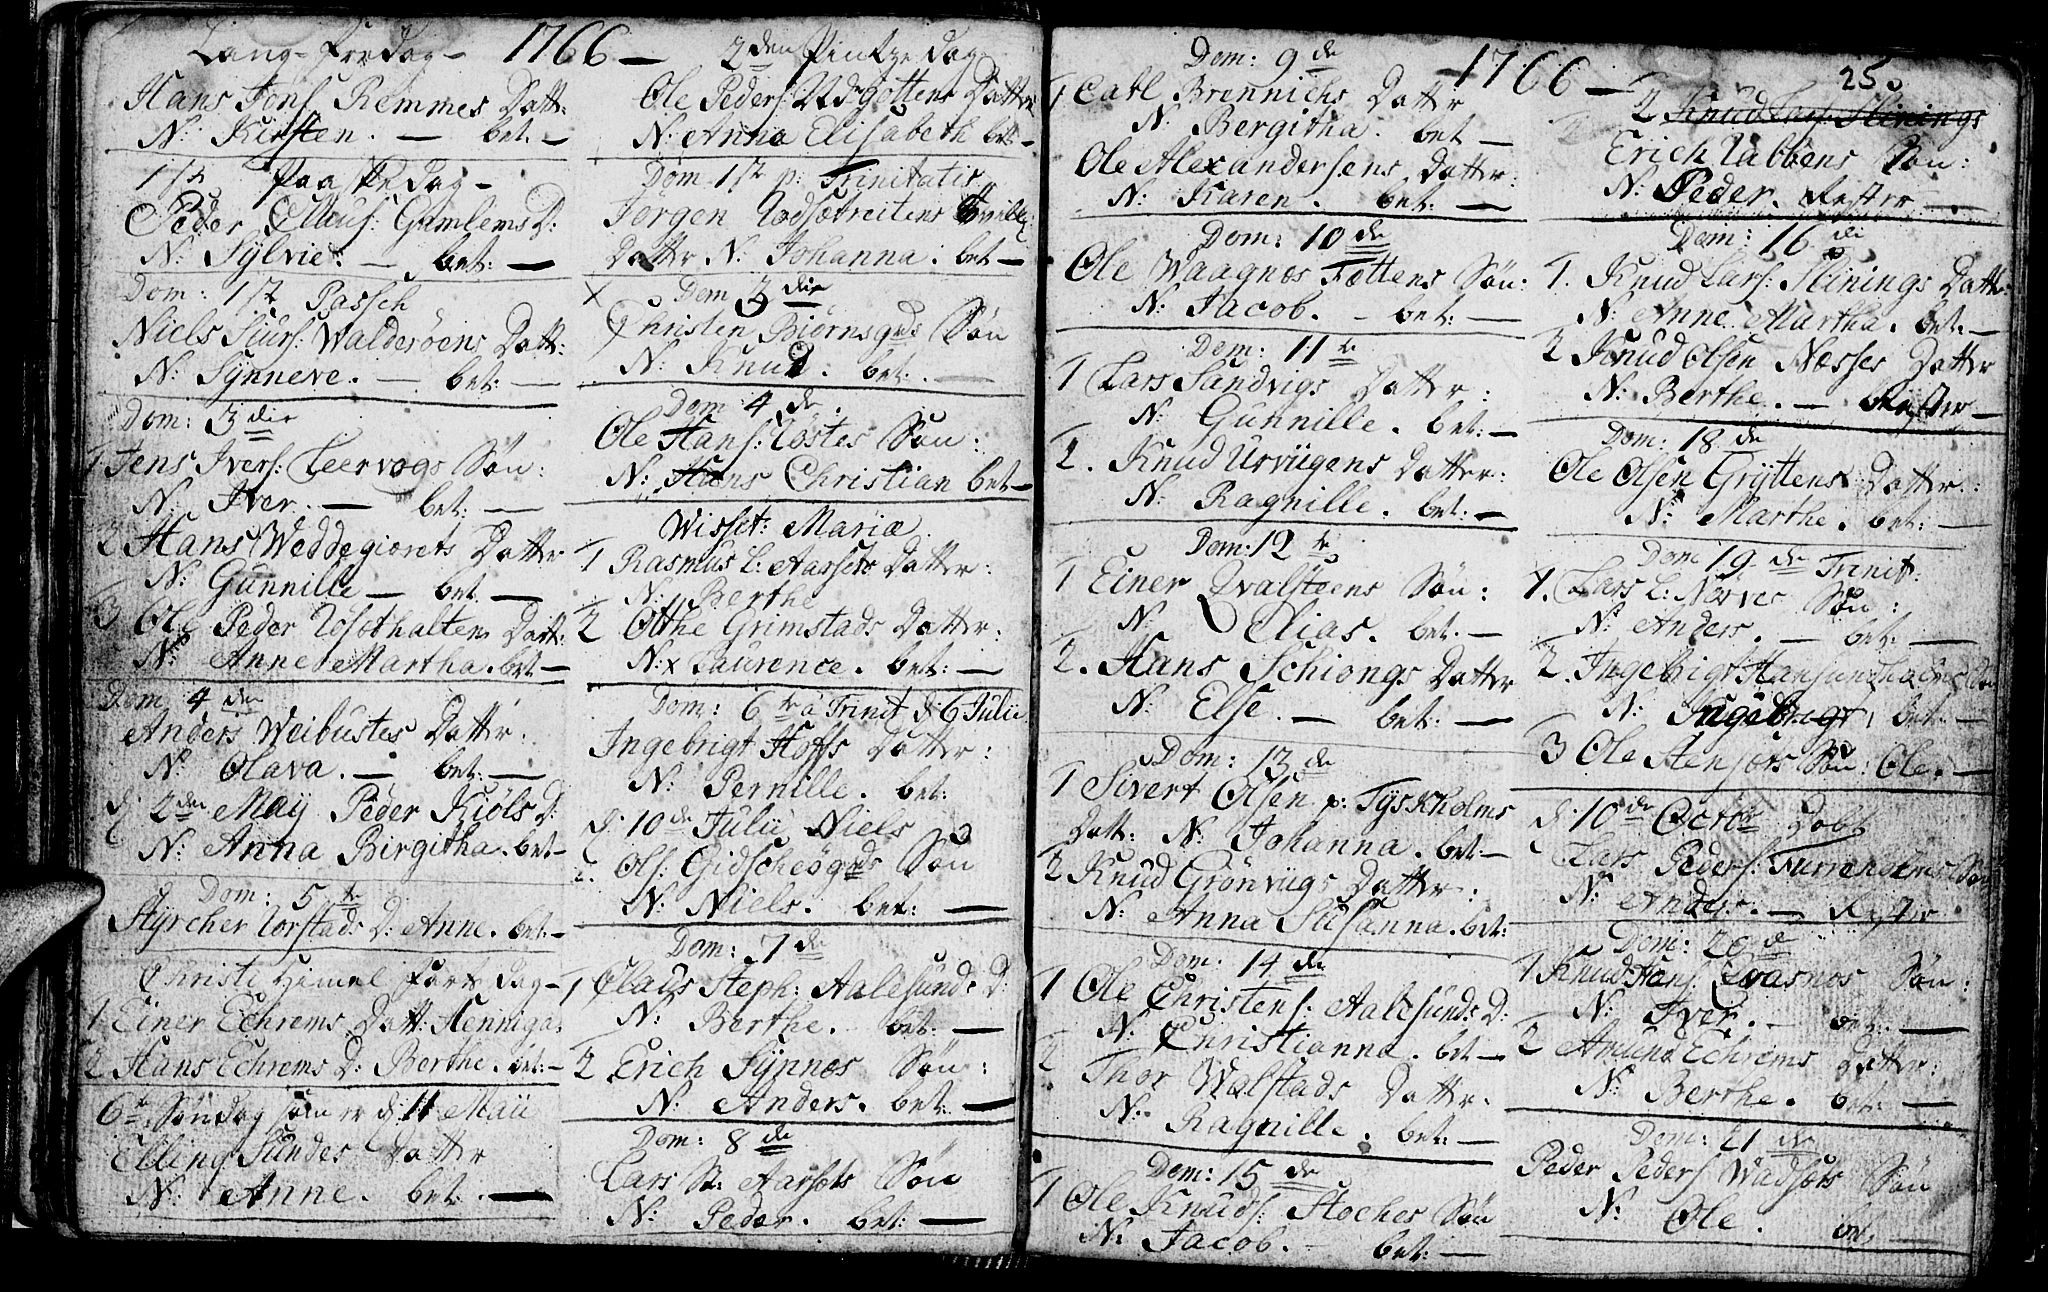 Lang-Fredag - 1766 -
Hans Jons: Remmes Datt:
N: Kirsten. - bet: -
1ste Paaske dag -
Peder Clauss: Gamlems D:
N: Sylvie: - bet: -
Dom: 1ste Pasch
Niels Siurs: Walderöens Datt:
N: Synneve. - bet: -
Dom: 3die
1 Jens Ivers: Leervogs Søn:
N: Iver. - bet: -
2 Hans Weddegiærets Datter
N: Gunnille - bet. -
3 Ole Peder Datt:
N: Anne Martha. bet -
Dom 4de
Anders Weibustes Datt'r.
N: Olava. - bet: -
d. 2den Maij Peder Kiöls D:
N: Anna Birgitha. bet -
Dom: 5te
Styrcher Vorstads D: Anne. bet: -
Christi Himmel farts dag -
1 Einer Echrems Datt: Henniga.
2 Hans Echrems D: Berthe. bet: -
6te Søndag som er d: 11 Maii
Elling Sundes Datter
N: Anne. bet. -
2den Pintze dag
Ole Peders: Gottens Datter
N: Anna Elisabeth bet -
Dom 1ste p: Trinitatis
Jørgen
Datter N: Johanna. bet -
x Dom 3die
Christen Biörnsgrds Søn
N: Knud. bet: -
Dom 4de.
Ole Hans: Søn:
N: Hans Christian bet -
Wisset: Mariæ
1 Rasmus L: Aarsets Datter:
N: Berthe
2 Othe Grimstads Datter:
N: x Laurence. bet: -
Dom: 6te a Trinit d. 6 Julii
Ingebrigt Hoffs Datter:
N: Pernille. bet:
d. 10de Julii Niels
Ols: Gidscheögrds Søn
N: Niels. bet: -
Dom: 7de
1 Claus Steph: Aalesunds D:
N: Berthe. bet: -
2 Erich Fynnes Søn:
N: Anders. bet: -
Dom: 8de
Lars St: Aarsets Søn
N: Peder. bet: -
Dom: 9de - 1766 -
1 Carl Brennichs Datter
N: Bergitha. bet -
Ole Alexandersens Datter:
N: Karen. bet: -
Dom: 10de
Ole Waagnes Fættens Søn:
N: Jacob. - bet: -
Dom: 11te
1 Lars Sandvigs Datter:
N: Gunnille. bet: -
2. Knud Urviigens Datter:
N: Ragnille. bet: -
Dom: 12te
1 Einer Qvalsteens Søn:
N: Elias. bet. -
2. Hans Schiongs Datter
N: Else. - bet: -
Dom: 13de
1 Sivert Olsen p: Tyskholms
Datt: N: Johanna. bet: -
2 Knud Grönviigs Datter:
N: Anna Susanna. bet:
Dom: 14de
1 Ole Christens: Aalesunds D:
N: Christianna. bet -
2 Thor Walstads Datter.
N: Ragnille. bet: -
Dom: 15de
1 Ole Knuds: Stoches Søn
N: Jacob. - bet: -
25.
2 Knud Lars: Slinings
Erich Uabbens Søn:
N: Peder. Rester -
Dom: 16de
1. Knud Lars: Slinings Datter:
N: Anne Martha. bet. -
2 Knud Olsen Næsses Datter
N: Berthe. - Rester -
Dom: 18de
Ole Olsen Gryttens Datter:
N: Marthe. bet: -
Dom 19de Trinit:
1. Lars L: Nørves Søn:
N: Anders. - bet: -
2. Ingebrigt Søn
N: Ingebrigt, bet: -
3 Ole Stensørs Søn: Ole. -
d: 10de Octbr Döbt
Lars Peders: Turrenholms Søn
N: Anders. - Rester
Dom: 20de
1 Knud Hans: Qvasnes Søn:
N: Iver. - bet: -
2 Amund Echrems Datter:
N: Berthe. bet: -
Dom: 21de
Peder Peders Wadsørs Søn
N: Ole. bet